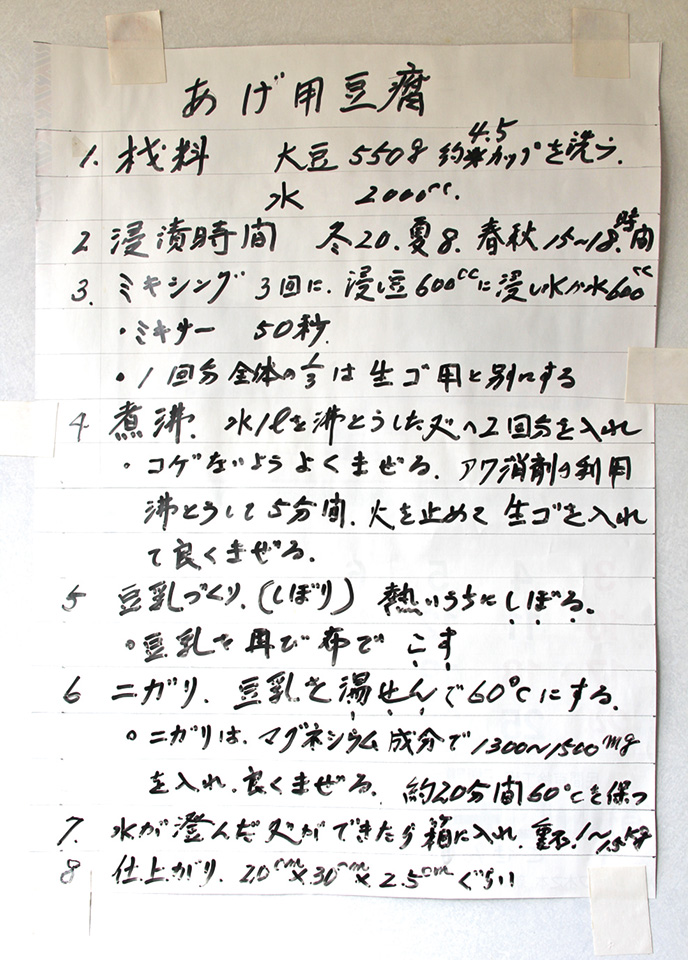 あげ用豆腐
1. 材料 大豆550g 約4.5カップを洗う.
水 2000cc.
2 浸漬時間 冬20.夏8.春秋15〜18.時間
3. ミキシング 3回に.浸し豆600ccに浸し水か水600cc
・ミキサー 50秒.
・1回分全体の1/3は生ゴ用と別にする
4 煮沸. 水1ℓを沸とうした処へ2回分を入れ
・コゲないようよくまぜる.アワ消剤の利用
沸とうして5分間.火を止めて生ゴを入れ
て良くまぜる.
5 豆乳づくり.(しぼり) 熱いうちにしぼる.
・豆乳を再び布でこす
6 ニガリ.豆乳を湯せんで60℃にする.
・ニガリは.マグネシウム成分で1300〜1500mg
を入れ.良くまぜる.約20分間60℃を保つ
7. 水が澄んだ処ができたら箱に入れ.重石.1〜1.5kg
8 仕上がり. 20cm×30cm×2.5cmぐらい